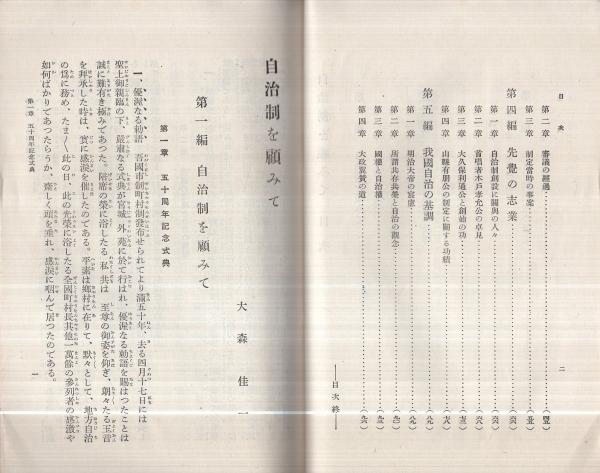 目次
二
第二章 審議の經過
第三章 制定當時の事業
第四編 先覺の志業
第一章 自治制創設に關與の人々
第二章 首唱者木戸孝允公の卓見
第三章 大久保利通公と創始の功
第四章 山縣有朋公の制定に關する功績
第五編 我國自治の基調
第一章 明治大帝の宸慮
第二章 所謂共存共榮と自治の觀念
第三章 國體と自治權
第四章 大政翼賛の道
——目次終——
自治制を顧みて
大森佳一
第一編 自治制を顧みて
第一章 五十周年記念式典
一、優渥なる勅語 吾國市制町村制發布せられてより滿五十年、去る四月十七日には
聖上御親臨の下、嚴肅なる式典が宮城外苑に於て行はれ、優渥なる勅語を賜はつたことは
誠に難有き極みであつた。陪席の榮に浴したる私共は 至尊の御姿を仰ぎ、朗々たる玉音
を拜承した時は、實に感淚を催したのである。平素は鄕村に在りて、默々として、地方自治
の爲に務め、たま〱此の日、此の光榮に浴したる全國町村長其他一萬餘の參列者の感激や
如何ばかりであつたらうか、齊しく頭を垂れ、感淚に咽んで居つたのである。
第一章 五十周年記念式典
一